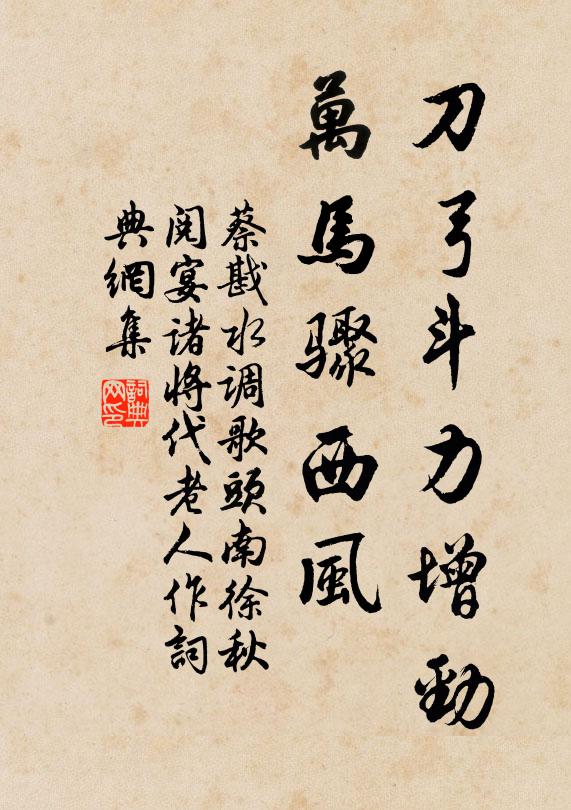 刀弓斗力增勁
萬馬驟西風
蔡戡水调歌頭南徐秋
閱宴诸將代老人作詞
典網集
詞典
网印